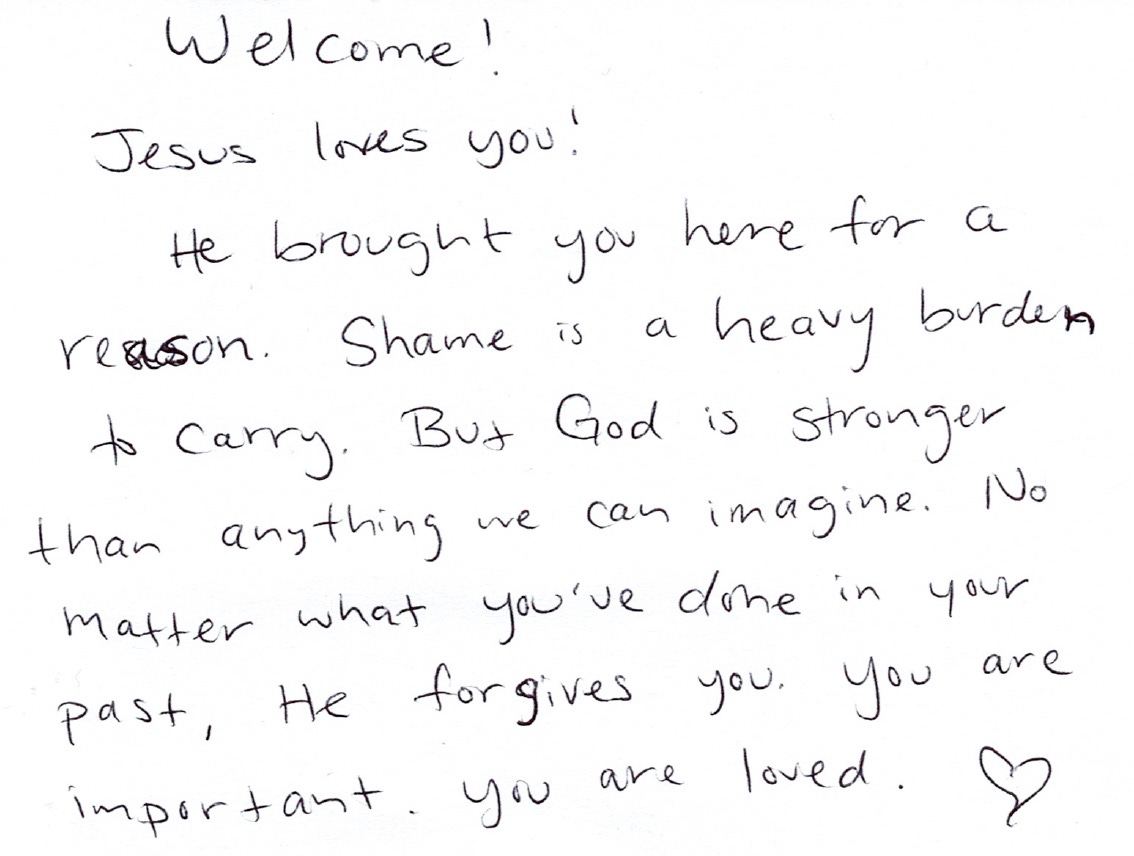 Welcome!
Jesus loves you!
He brought you here for a
reason. Shame is a heavy burden
to carry. But God is stronger
than anything we can imagine. No
matter what you've done in your
past, He forgives you. You are
important. You are loved. ♡